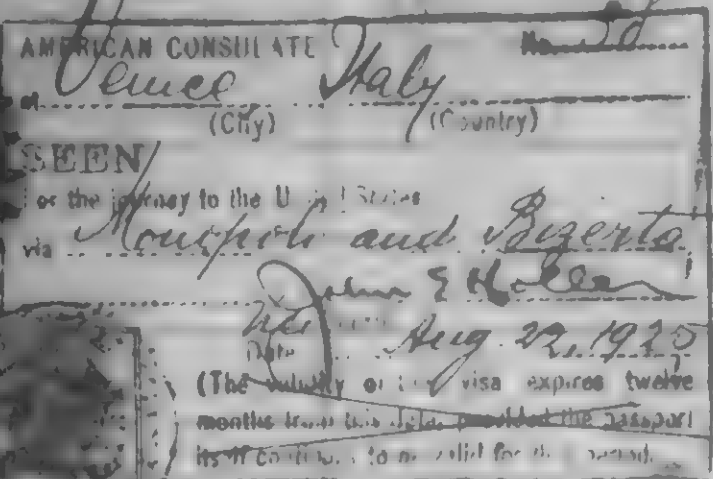 AMERICAN CONSULATE No.
at Venice Italy
(City) (Country)
SEEN
For the journey to the United States
via Monopoli and Bizerta
John E
Date Aug. 22, 1925
(The validity of this visa expires twelve
months from this date, provided the passport
itself continues to be valid for that period.